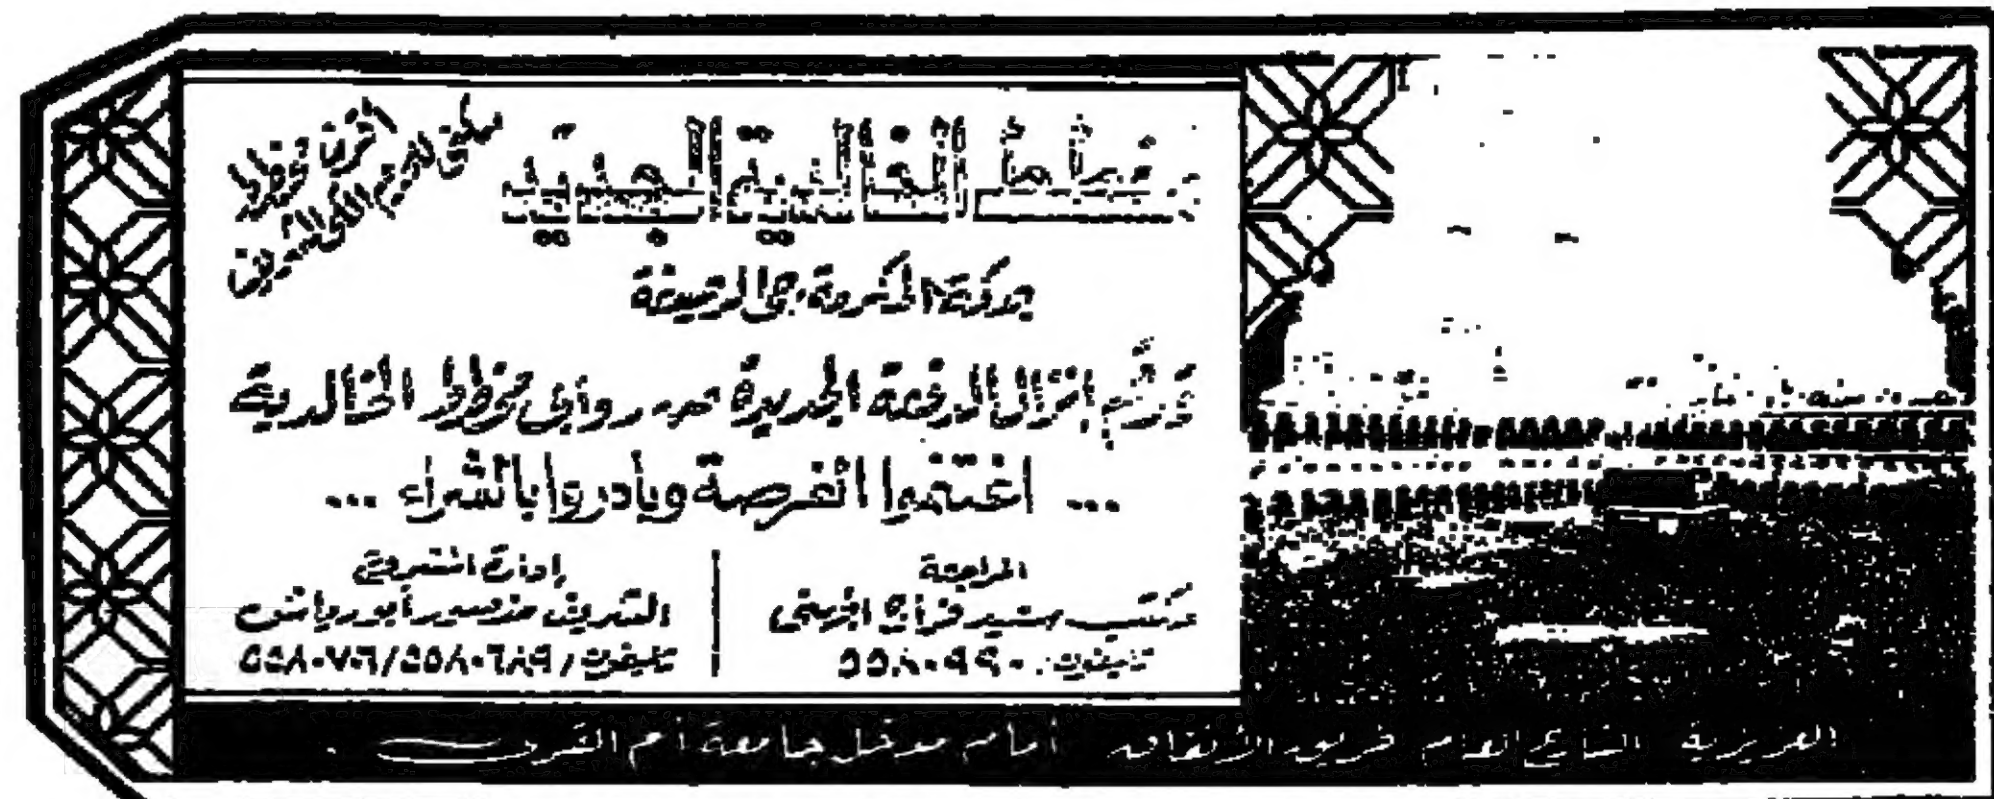 مخطط الخالدية الجديد
أقرب مخطط
سكني للحرم المكي الشريف
بمكة المكرمة، حي الرصيفة
وتم إنزال الدفعة الجديدة من روابي مخطط الخالدية
... اغتنموا الفرصة وبادروا بالشراء ...
المراجعة
مكتب سيد فراج
تليفون: ٥٥٨٠٩٩٠
إدارة المشروع
الشريف منصور أبو رياش
تليفون / ٥٥٨٠٦٨٩ / ٥٥٨٠٧٠٦
العزيزية الشارع العام طريق الأنفاق أمام مدخل جامعة أم القرى